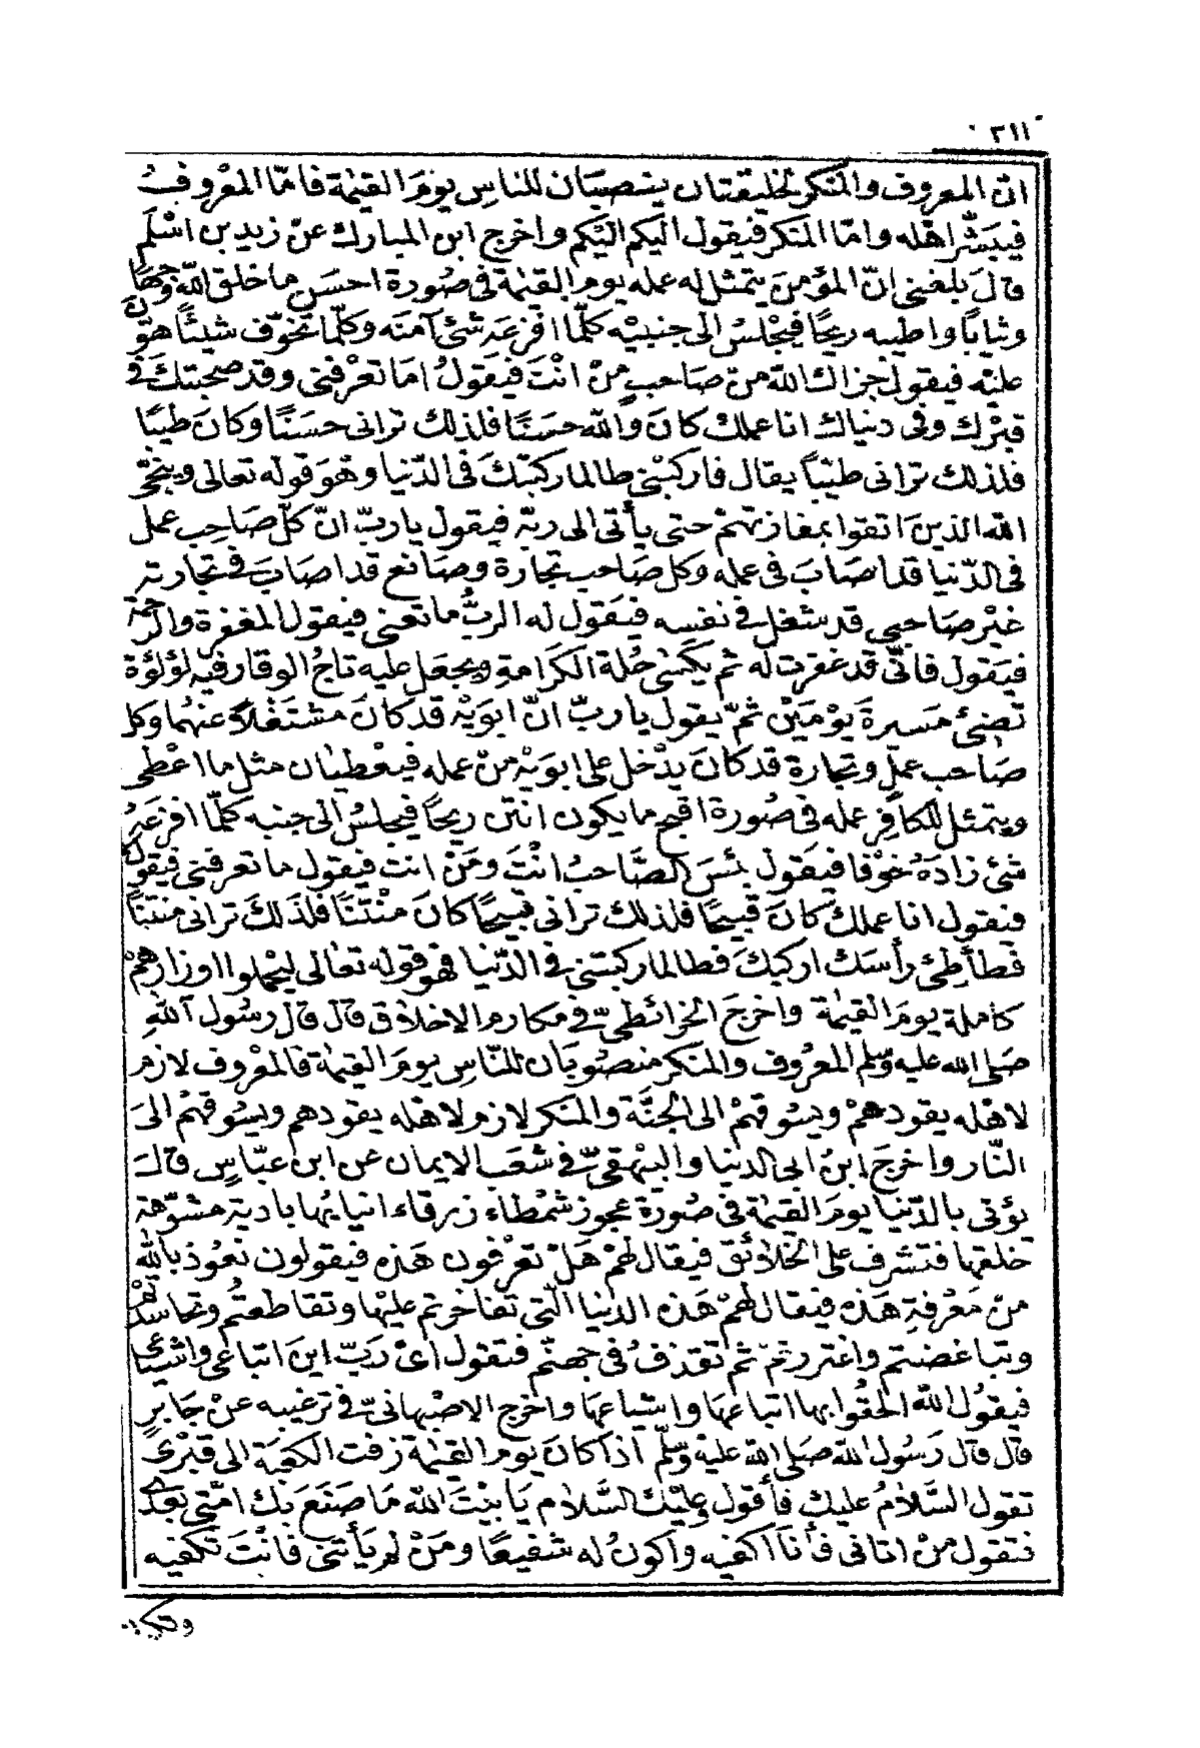 ٣١١
انّ المعروف والمنكر لخليقتان ينصبان للناس يوم القيٰمة فامّا المعروفُ
فيبشّر اهْله وامّا المنكر فيقول اليكم اليْكم واخرج ابن المبارك عنْ زيد بن اسْلَم
قالَ بلغني انّ المؤمنَ يتمثل له عمله يوم القيٰمة في صُورة احسَن ما خلق اللّه وجهًا
وثيابًا واطيبه ريحًا فيجْلسُ الى جنبيْه كلّما افزعَه شئ آمنَه وكلّما تخوّف شيئًا هوّن
عليْه فيقول جزاك اللّه منْ صَاحبٍ منْ انْتَ فيَقولُ امَا تعرْفنى وقد صحبتكَ في
قبْرك وفى دنياك انا عملك كانَ واللّه حسَنًا فلذلك ترانى حسَنًا وكانَ طيبًا
فلذلك ترانى طيّباً يقال فاركبْنى طالما ركبْتكَ فى الدّنيا وهْوَ قوله تعالى وينجّى
اللّه الذينَ اتقوا بمفازتهمْ حتى يأتى الى ربّه فيقول ياربّ انّ كلّ صَاحِب عمل
فى الدّنيا قد اصَابَ فى عمله وكل صَاحب تجارة وصَانع قد اصَابَ فى تجارته
غيْر صَاحبى قد شغل فى نفسِه فيَقول له الربُّ ما تعنى فيقول المغفرة والرّحمة
فيَقول فانّى قد غفرت له ثم يكسَى حُلة الكرَامةِ ويجعَل عليه تاجُ الوقار فيْه لؤلؤة
تضئ مَسيرةَ يوْمَيْن ثمّ يقول ياربّ انّ ابويْه قد كانَ مشتغلاً عنهُما وكل
صَاحب عملٍ وتجارة قد كانَ يدْخل على ابوَيْه منْ عمله فيعْطيٰان مثل ما اعْطى
ويتمثل للكافِر عمله فى صُورة اقبح ما يكون انتَن ريحًا فيجلسُ الى جنبه كلّما افزعَهُ
شئ زادَهُ خوْفا فيَقول بئسَ الصَّاحبُ انْتَ ومَنْ انت فيقول ما تعرفنى فيقول
فيقول انا عملك كانَ قبيحًا فلذلك ترانى قبيحًا كانَ منْتنًا فلذلكَ ترانى منتنًا
فطأطِئ رأسَك اركبكَ فطالما ركبتنى فى الدّنيا فهو قوله تعالى ليحْملوا اوزارهمْ
كاملة يومَ القيٰمة واخرجَ الخرائطىّ فى مكارم الاخلاق قال قال رسُول اللّهِ
صَلى اللّه عليه وسّلم المعْرُوف والمنكر منصُوبَان للنّاسِ يومَ القيٰمة فالمعْروف لازم
لاهْله يقودهمْ ويسُوقهمْ الى الجنَّة والمنكر لازم لاهْله يقودهم ويسُوقهمْ الىَ
النّار واخرجَ ابنُ ابى الدنيا والبيْهقىّ فى شعَب الايمان عن ابن عبّاسٍ قالَ
يؤتى بالدّنيا يومَ القيٰمة فى صُورة عجوز شمْطاء زرقاء انيابُها بادية مشوّهة
خلقها فتشرف على الخلائق فيقال لهمْ هَلْ تعْرفون هَذه فيقولون نعُوذ باللّه
منْ مَعْرفةِ هَذه فيقال لهمْ هَذه الدنيا الّتى تفاخرتم عليْها وتقاطعتُم وتحاسدْتمْ
وتباغضتم واغتررتم ثم تقذفُ فى جهنّم فتقول اىْ رَبّ اينَ اتباعى واشيَاعى
فيقُولُ اللّه الحقُوا بها اتباعهَا واشياعهَا واخرج الاصْبهانىّ فى ترغيبه عنْ جَابرٍ
قال قال رَسُول اللّه صَلى اللّه عليْه وسّلم اذا كانَ يوم القيٰمة زفت الكعْبَة الى قبْرى
تقول السَّلامُ عليك فأقول وعليْك السَّلام يَا بيْتَ اللّه مَا صَنَعَ بك امّتى بعْدى
فتقول منْ اتانى فأنَا اكفيه وأكونُ له شفيعًا ومَنْ لم يَأتنى فانْتَ تكفيه